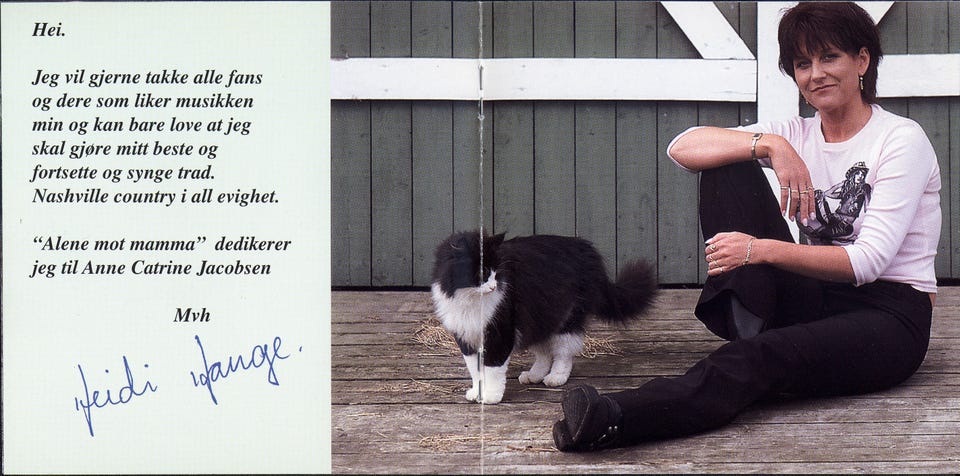 Hei.
Jeg vil gjerne takke alle fans
og dere som liker musikken
min og kan bare love at jeg
skal gjøre mitt beste og
fortsette og synge trad.
Nashville country i all evighet.
“Alene mot mamma” dedikerer
jeg til Anne Catrine Jacobsen
Mvh
Heidi Hauge.